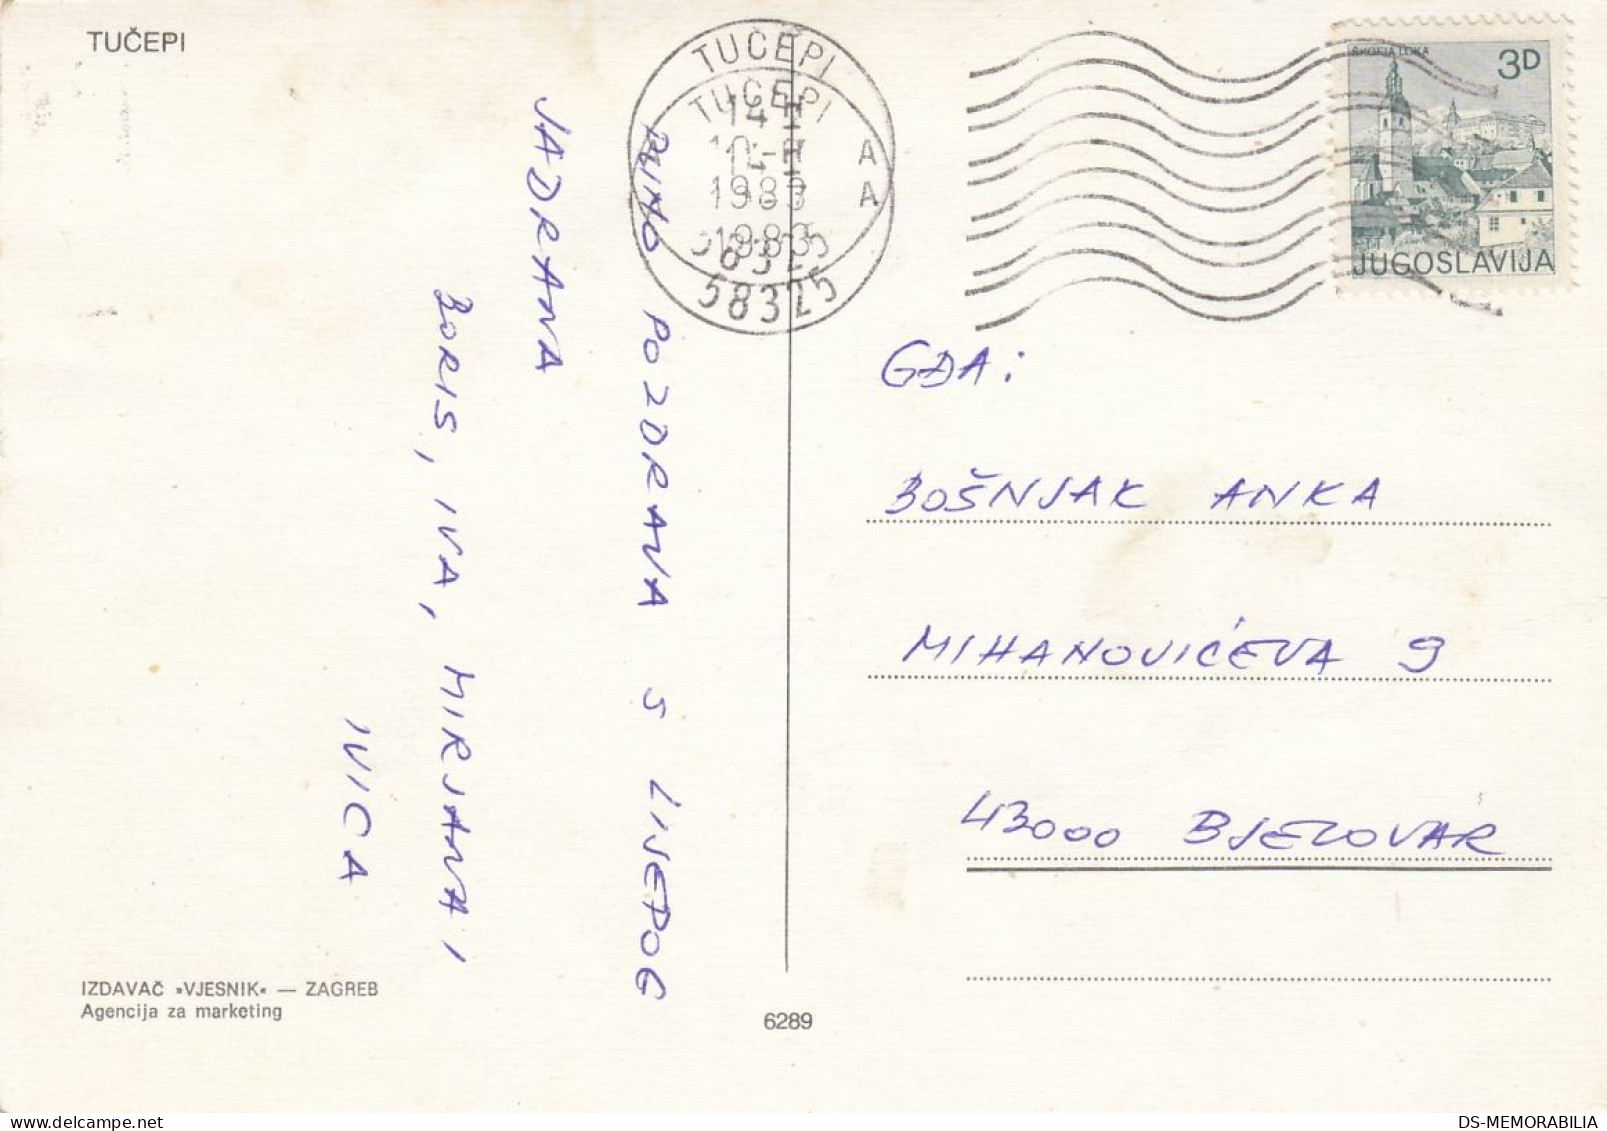 TUČEPI
TUČEPI
TUČEPI
14
A
A
1983
1983
58325
58325
ŠKOFJA LOKA
3D
JUGOSLAVIJA
PUNO POZDRAVA S LIJEPOG
JADRANA
BORIS, IVA, MIRJANA I
IVICA
GĐA:
BOŠNJAK ANKA
MIHANOVIĆEVA 9
43000 BJELOVAR
IZDAVAČ »VJESNIK« — ZAGREB
Agencija za marketing
6289
DS-MEMORABILIA